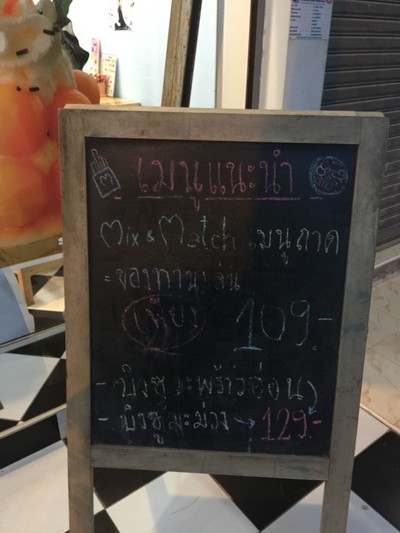 เมนูแนะนำ
Mix & Match เมนูถาด
= ของทานเล่น
เพียง 109.-
- บิงซูมะพร้าวอ่อน
- บิงซูมะม่วง → 129.-